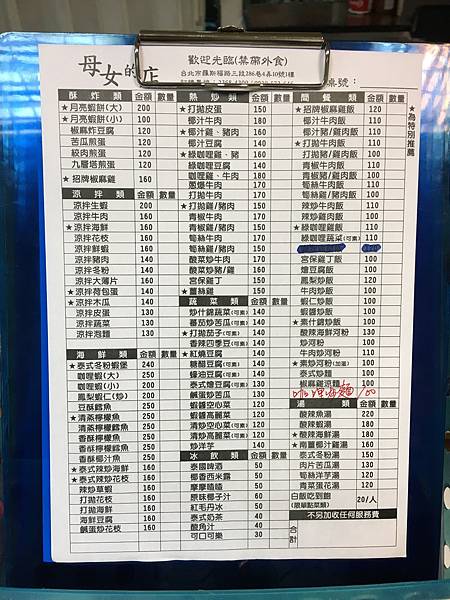 母女的店
歡迎光臨(禁帶外食)
台北市羅斯福路三段286巷4弄10號1樓
桌號：
★為特別推薦
酥炸類 金額 數量
★月亮蝦餅(大) 200
★月亮蝦餅(小) 100
椒麻炸豆腐 120
苦瓜煎蛋 120
絞肉煎蛋 120
九層塔煎蛋 120
★招牌椒麻雞 160
涼拌類 金額 數量
涼拌生蝦 200
涼拌牛肉 160
★涼拌海鮮 160
涼拌花枝 160
涼拌鮮蝦 160
涼拌豬肉 140
涼拌冬粉 140
涼拌大薄片 140
★涼拌荷包蛋 140
★涼拌木瓜 140
涼拌皮蛋 130
涼拌蔬菜 130
涼拌泡麵 130
海鮮類 金額 數量
★泰式冬粉蝦堡 240
咖哩蝦(大) 250
咖哩蝦(小) 200
鳳梨蝦仁(炒) 200
豆酥鱈魚 250
★清蒸檸檬魚 250
清蒸檸檬鱈魚 250
香酥檸檬魚 250
香酥檸檬鱈魚 250
香酥椰汁魚 250
★泰式辣炒海鮮 160
★泰式辣炒花枝 160
辣炒草蝦 160
打拋花枝 160
打拋海鮮 160
海鮮豆腐 160
鹹蛋炒花枝 160
熱炒類 金額 數量
★打拋皮蛋 150
椰汁牛肉 180
★椰汁雞、豬肉 160
椰汁豆腐 160
★綠咖哩雞、豬 160
綠咖哩豆腐 160
咖哩雞、牛肉 160
蔥爆牛肉 170
打拋牛肉 170
★打拋雞/豬肉 160
青椒牛肉 170
青椒雞/豬肉 160
筍絲牛肉 170
筍絲雞/豬肉 160
酸菜炒牛肉 170
酸菜炒豬/雞 160
宮保雞丁 160
★薑絲雞 150
蔬菜類 金額 數量
炒什錦蔬菜(可素) 140
蕃茄炒苦瓜(可素) 140
★打拋茄子(可素) 140
香辣四季豆(可素) 140
★紅燒豆腐 140
糖醋豆腐(可素) 140
蠔油豆腐(可素) 140
泰式燴豆腐(可素) 130
鹹蛋炒苦瓜 130
蝦醬空心菜 120
蝦醬高麗菜 120
清炒空心菜(可素) 120
清炒高麗菜(可素) 120
炒洋芋 140
冰飲類 金額 數量
泰國啤酒 50
椰香西米露 50
摩摩喳喳 50
原味椰子汁 60
紅毛丹冰 50
泰式奶茶 40
酸角汁 40
可口可樂 30
簡餐類 金額 數量
★招牌椒麻雞飯 120
椰汁牛肉飯 110
椰汁豬/雞肉飯 110
★打拋牛肉飯 110
打拋豬/雞肉飯 110
青椒牛肉飯 110
青椒豬/雞肉飯 110
筍絲牛肉飯 110
筍絲豬/雞肉飯 110
辣炒牛肉飯 110
辣炒雞肉飯 110
★綠咖哩雞飯 110
綠咖哩蔬菜(可素) 110
宮保雞丁飯 100
燴豆腐飯 100
鳳梨炒飯 120
牛肉炒飯 110
蝦仁炒飯 100
蝦醬炒飯 100
★素什錦炒飯 100
酸辣海鮮河粉 130
炒河粉 100
牛肉炒河粉 110
★素炒河粉(加蛋) 100
泰式炒麵 100
椰麻雞涼麵 100
咖哩炒麵 100
湯類 金額 數量
酸辣魚湯 220
酸辣蝦湯 180
★酸辣海鮮湯 180
★南薑椰汁雞湯 160
泰式冬粉湯 150
肉片苦瓜湯 130
筍絲洋芋湯 130
青菜蛋花湯 120
白飯吃到飽 20/人
(限單點菜類)
不另加收任何服務費
合計